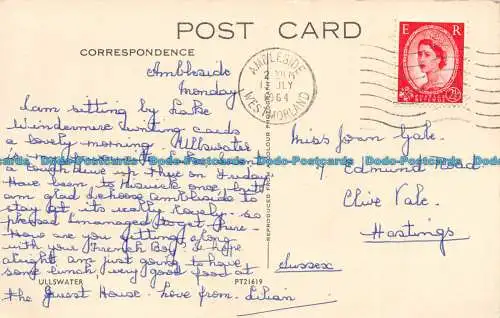 POST CARD
CORRESPONDENCE
Ambleside
Monday
I am sitting by Lake
Windermere writing cards
a lovely morning. Ullswater
a tough drive up there on Sunday
Have been to Keswick once, but I
am glad I chose Ambleside to
stay at, its really lovely - so
pleased I managed to get here -
How are you getting along
with your "French Boy"? I hope
alright. am just going to have
some lunch, very good food at
the Guest House. Love from Lilian
ULLSWATER
PT21619
AMBLESIDE
JLY
1964
WESTMORLAND
E R
2½
Miss Joan Gale.
7 Edmund Road
Clive Vale.
Hastings
Sussex
Dodo-Postcards Dodo-Postcards Dodo-Postcards Dodo-Postcards